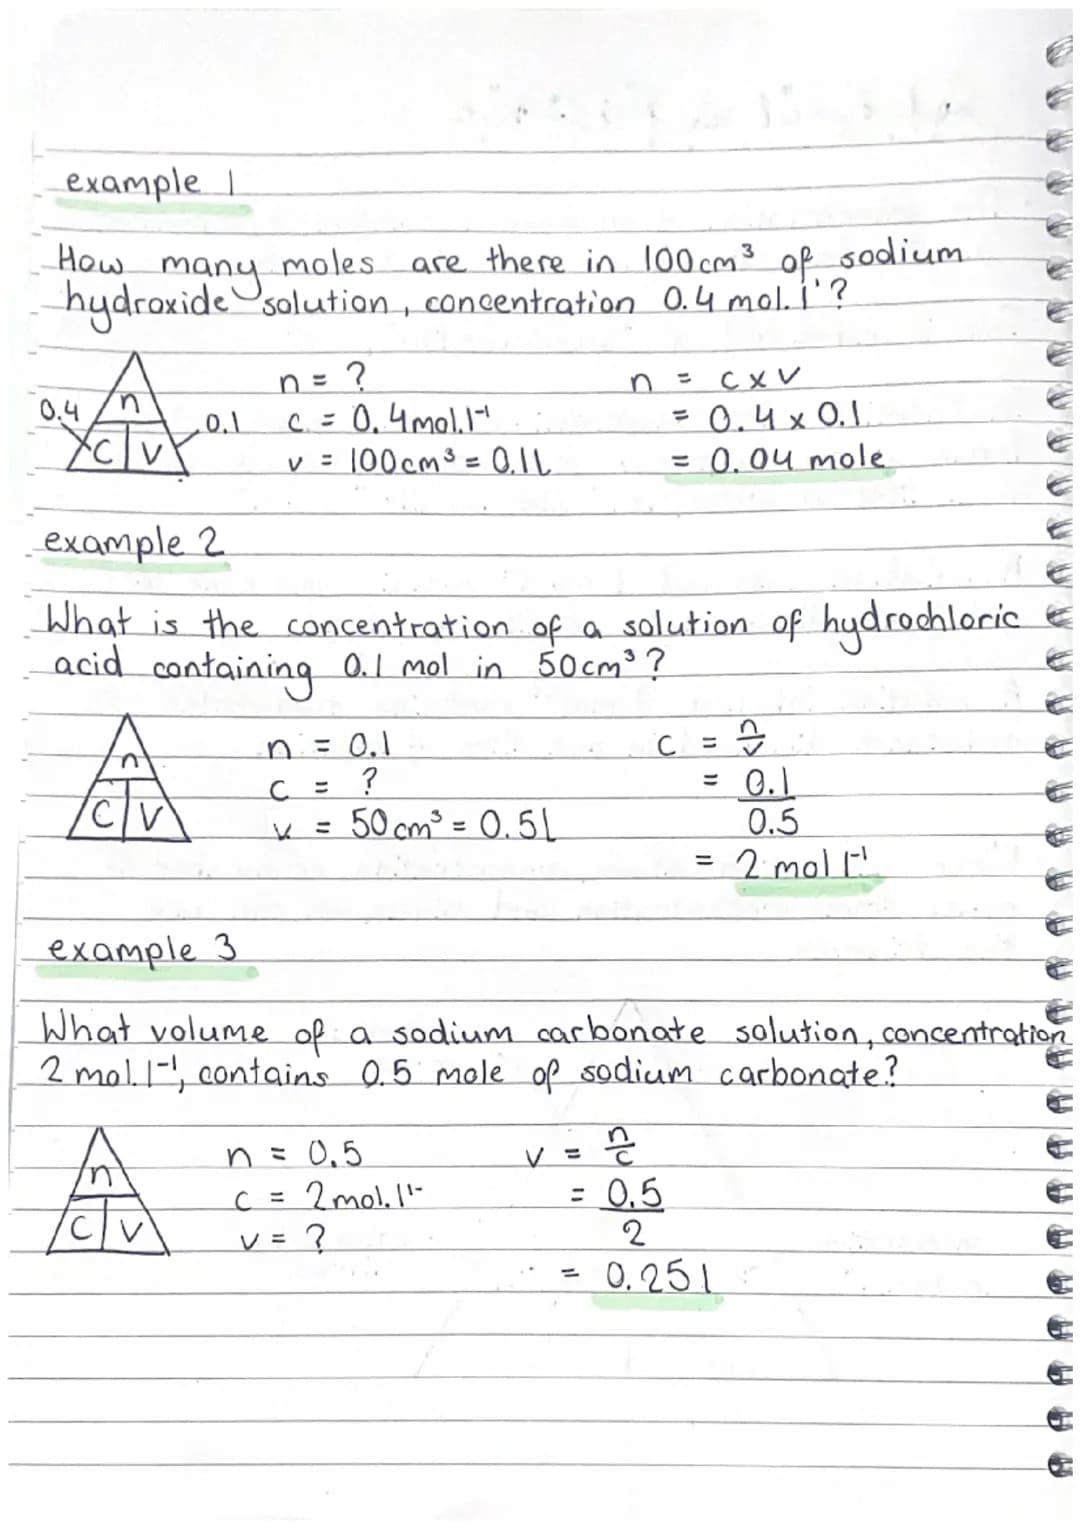 example 1
How many moles are there in 100cm³ of sodium
hydroxide solution, concentration 0.4 mol. l¹?
n = ? n = c x v
0.4 n 0.1 c = 0.4mol.l⁻¹ = 0.4 x 0.1
c v v = 100cm³ = 0.1L = 0.04 mole
example 2
What is the concentration of a solution of hydrochloric
acid containing 0.1 mol in 50cm³?
n n = 0.1 c = n/v
c = ? = 0.1
c v v = 50cm³ = 0.5l 0.5
= 2 mol l⁻¹
example 3
What volume of a sodium carbonate solution, concentration
2 mol. l⁻¹, contains 0.5 mole of sodium carbonate?
n n = 0.5 v = n/c
c = 2mol. l¹⁻ = 0.5
c v v = ? 2
= 0.25l